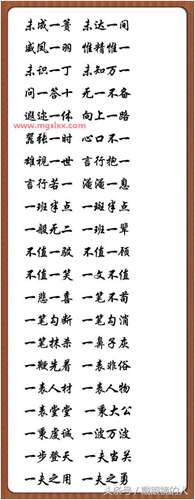 未成一篑 未达一间
威凤一羽 惟精惟一
未识一丁 未知万一
问一答十 无一不备
遐迩一体 向上一路
嚣张一时 心口不一
雄视一世 言行抱一
言行若一 淹淹一息
一班半点 一斑半点
一般无二 一班一辈
不值一驳 不值一顾
不值一笑 一文不值
一悲一喜 一笔不苟
一笔勾断 一笔勾消
一笔抹杀 一鼻子灰
一鞭先着 一表非俗
一表人材 一表人物
一表堂堂 一秉大公
一秉虔诚 一波万波
一步登天 一夫当关
一夫之用 一夫之勇
www.mgslxx.com